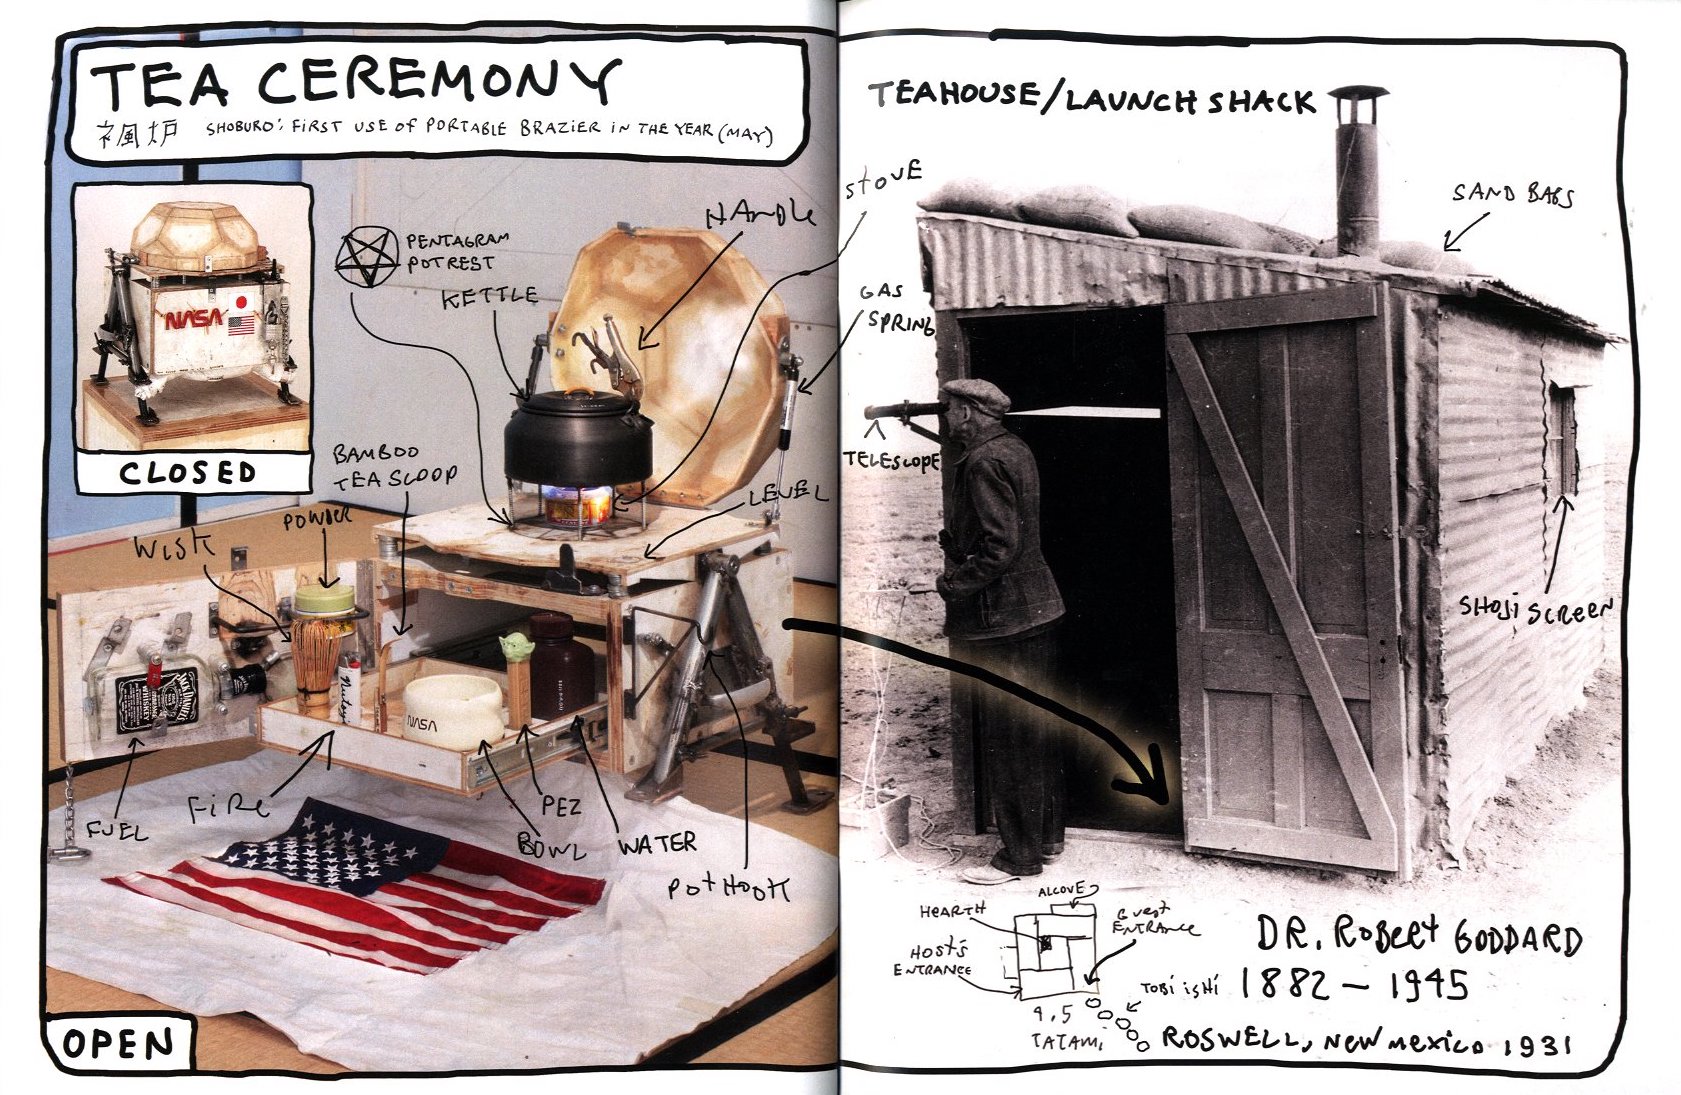 TEA CEREMONY
風炉 SHOBURO: FIRST USE OF PORTABLE BRAZIER IN THE YEAR (MAY)
NASA
CLOSED
PENTAGRAM
POT REST
KETTLE
HANDLE
STOVE
GAS
SPRING
BAMBOO
TEA SCOOP
LEVEL
POWDER
WISK
JACK DANIEL'S
WHISKEY
NASA
FUEL
FIRE
PEZ
BOWL
WATER
POT HOOK
OPEN
TEAHOUSE/LAUNCH SHACK
SAND BAGS
TELESCOPE
SHOJI SCREEN
ALCOVE
HEARTH
GUEST
ENTRANCE
HOST'S
ENTRANCE
TOBI ISHI
4.5
TATAMI
DR. ROBERT GODDARD
1882 – 1945
ROSWELL, NEW MEXICO 1931